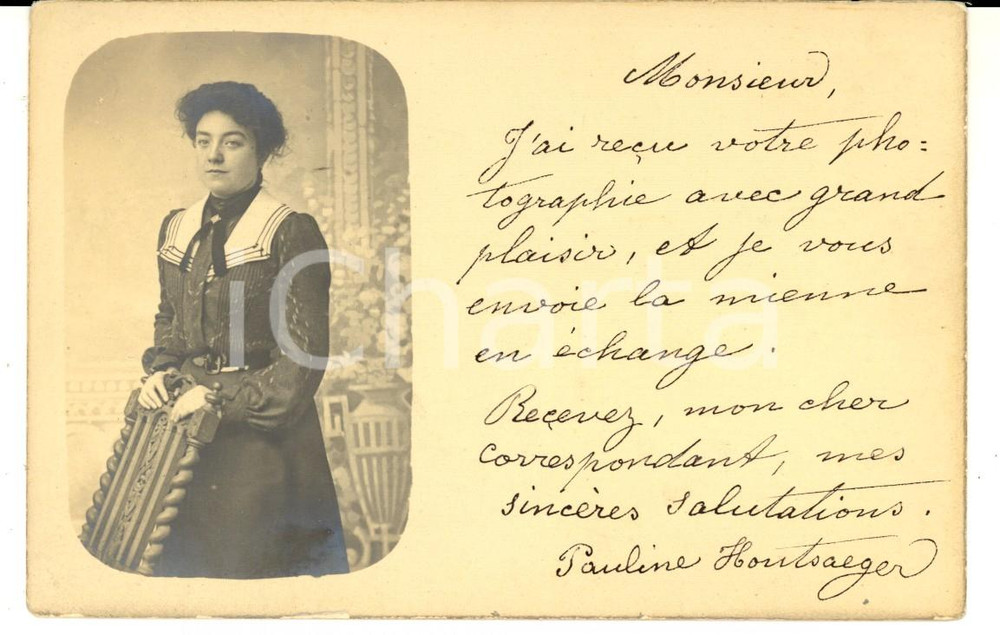 Monsieur,
J'ai reçu votre pho=
tographie avec grand
plaisir, et je vous
envoie la mienne
en échange.
Reçevez, mon cher
correspondant, mes
sincères salutations.
Pauline Houtsaeger
iCharta